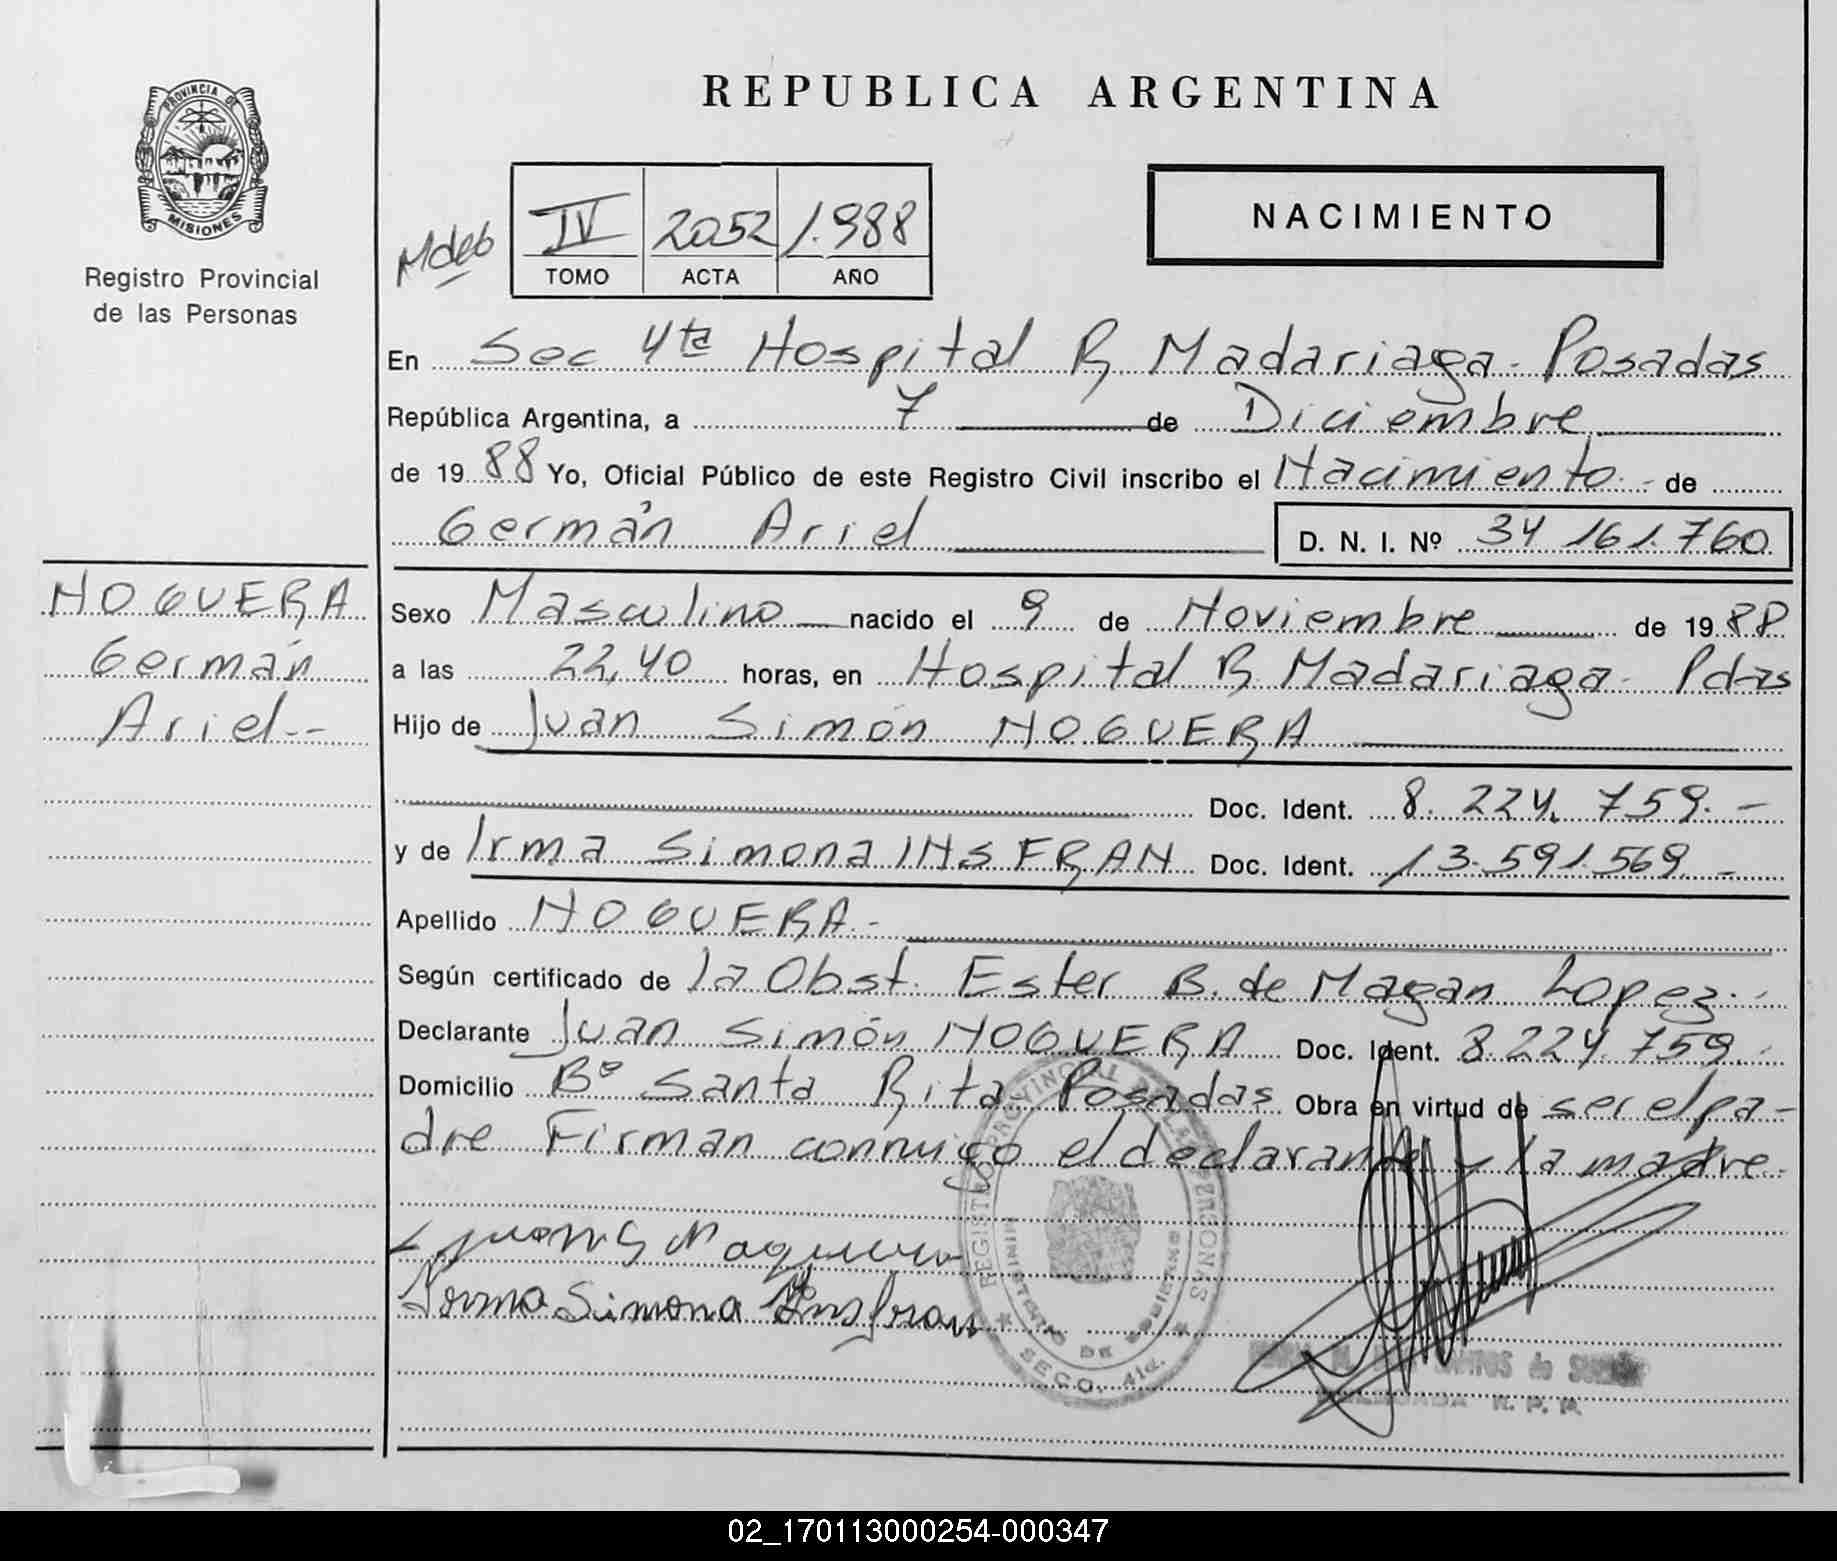 REPUBLICA ARGENTINA
PROVINCIA DE
MISIONES
Registro Provincial
de las Personas
IV 2052 1.988
TOMO ACTA AÑO
NACIMIENTO
En Sec 4ta Hospital R Madariaga - Posadas
República Argentina, a 7 de Diciembre
de 1988 Yo, Oficial Público de este Registro Civil inscribo el Nacimiento - de
Germán Ariel D. N. I. Nº 34 161.760
NOGUERA
Germán
Ariel--
Sexo Masculino nacido el 9 de Noviembre de 1988
a las 22,40 horas, en Hospital R Madariaga - Pdas
Hijo de Juan Simón NOGUERA
Doc. Ident. 8.224.759.-
y de Irma Simona INSFRAN Doc. Ident. 13.591.569.-
Apellido NOGUERA.-
Según certificado de la Obst. Ester B. de Magan Lopez.-
Declarante Juan Simón NOGUERA Doc. Ident. 8.224.759.-
Domicilio Bº Santa Rita Posadas Obra en virtud de ser el pa-
dre Firman conmigo el declarante y la madre.
Juan S Noguera
Irma Simona Insfran
REGISTRO PROVINCIAL DE LAS PERSONAS
MINISTERIO DE GOBIERNO
SECC. 4ta.
de
R. P. P.
02_170113000254-000347